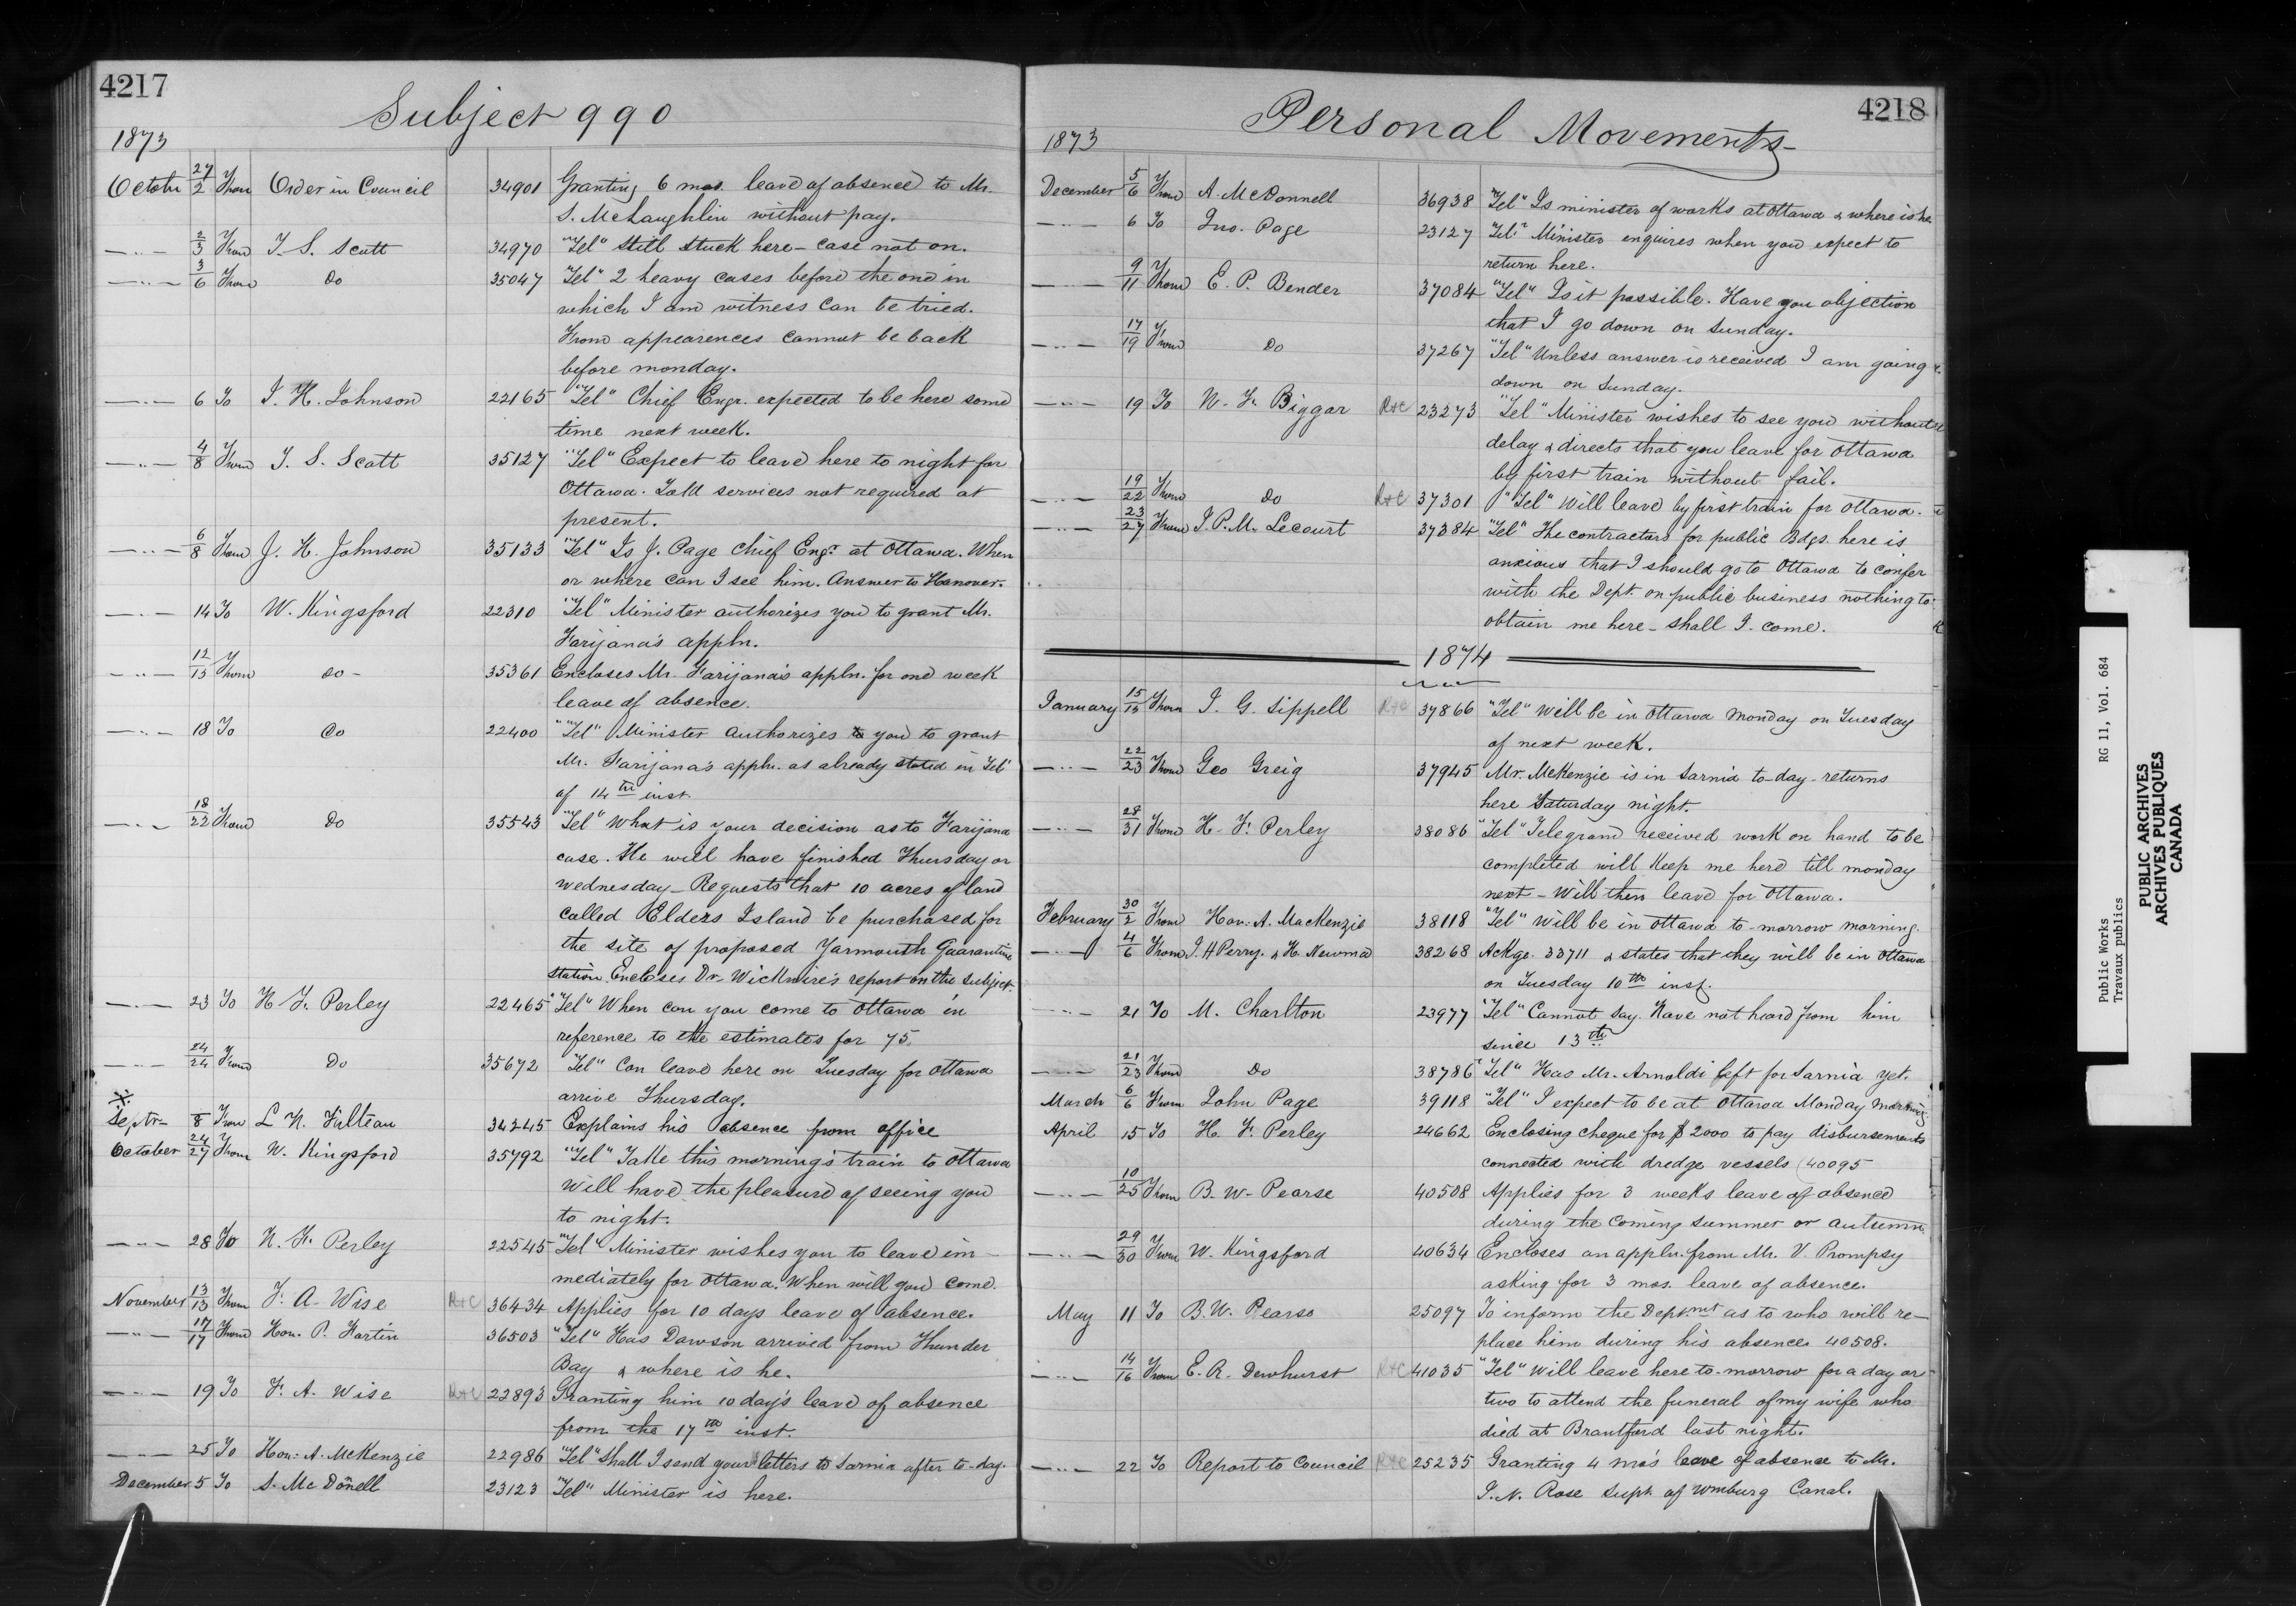 4217
Subject 990
1873
October 27/2 From Order in Council 34901 Granting 6 mos. leave of absence to Mr.
S. McLaughlin without pay.
—"— 2/3 From T. S. Scott 34970 "Tel" Still stuck here - case not on.
—"— 3/6 From Do 35047 "Tel" 2 heavy cases before the one in
which I am witness can be tried.
From appearences cannot be back
before monday.
—"— 6 To J. H. Johnson 22165 "Tel" Chief Engr. expected to be here some
time next week.
—"— 4/8 From T. S. Scott 35127 "Tel" Expect to leave here to night for
Ottawa. Told services not required at
present.
—"— 6/8 From J. H. Johnson 35133 "Tel" Is J. Page Chief Engr. at Ottawa. When
or where can I see him. Answer to Hanover.
—"— 14 To W. Kingsford 22310 "Tel" Minister authorizes you to grant Mr.
Farijana's appln.
—"— 12/15 From do - 35361 Encloses Mr. Farijana's appln. for one week
leave of absence.
—"— 18 To Do 22400 "Tel" Minister authorizes you to grant
Mr. Farijana's appln. as already stated in Tel
of 14th inst.
—"— 18/22 From Do 35543 "Tel" What is your decision as to Farijana
case. He will have finished Thursday or
Wednesday - Requests that 10 acres of land
called Elders Island be purchased for
the site of proposed Yarmouth Quarantine
station. Encloses Dr. Wickwire's report on the subject.
—"— 23 To H. F. Perley 22465 "Tel" When can you come to Ottawa in
reference to the estimates for 75.
—"— 24/24 From Do 35672 "Tel" Can leave here on Tuesday for Ottawa
arrive Thursday.
Septr 8 From L. N. Fulteau 34245 Explains his absence from office
October 24/27 From W. Kingsford 35792 "Tel" Take this morning's train to Ottawa
Will have the pleasure of seeing you
to night.
—"— 28 To H. F. Perley 22545 "Tel" Minister wishes you to leave im-
mediately for Ottawa. When will you come.
November 13/13 From F. A. Wise R+C 36434 Applies for 10 days leave of absence.
—"— 17/17 From Hon. P. Fortin 36503 "Tel" Has Dawson arrived from Thunder
Bay & where is he.
—"— 19 To F. A. Wise R+C 22893 Granting him 10 day's leave of absence
from the 17th inst.
—"— 25 To Hon. A. McKenzie 22986 "Tel" Shall I send your letters to Sarnia after to-day.
December 5 To S. McDonell 23123 "Tel" Minister is here.
4218
Personal Movements-
1873
December 5/6 From A. McDonnell 36938 "Tel" Is minister of works at Ottawa & where is he
—"— 6 To Jno. Page 23127 "Tel" Minister enquires when you expect to
return here.
—"— 9/11 From E. P. Bender 37084 "Tel" Is it possible. Have you objection
that I go down on Sunday.
—"— 17/19 From Do 37267 "Tel" Unless answer is received I am going
down on Sunday.
—"— 19 To W. F. Biggar R+C 23273 "Tel" Minister wishes to see you without
delay & directs that you leave for Ottawa
by first train without fail.
—"— 19/22 From Do R+C 37301 "Tel" Will leave by first train for Ottawa.
—"— 23/27 From J. P. M. Lecourt 37384 "Tel" The contractors for public Bdgs. here is
anxious that I should go to Ottawa to confer
with the Dept. on public business nothing to
obtain me here - shall I come.
1874
January 15/15 From J. G. Sippell R+C 37866 "Tel" Will be in Ottawa Monday on Tuesday
of next week.
—"— 22/23 From Geo Greig 37945 Mr. McKenzie is in Sarnia to-day - returns
here Saturday night.
—"— 28/31 From H. F. Perley 38086 "Tel" Telegram received work on hand to be
completed will keep me here till monday
next - Will then leave for Ottawa.
February 30/2 From Hon. A. MacKenzie 38118 "Tel" Will be in Ottawa to-morrow morning.
—"— 4/6 From J. H Perry. & H. Newma 38268 Ackge. 33711 & states that they will be in Ottawa
on Tuesday 10th inst.
—"— 21 To M. Charlton 23977 "Tel" Cannot say. Have not heard from him
since 13th
—"— 21/23 From Do 38786 "Tel" Has Mr. Arnoldi left for Sarnia yet.
March 6/6 From John Page 39118 "Tel" I expect to be at Ottawa Monday morning.
April 15 To H. F. Perley 24662 Enclosing cheque for $2000 to pay disbursements
connected with dredge vessels (40095
—"— 10/25 From B. W. Pearse 40508 Applies for 3 weeks leave of absence
during the coming summer or autumn.
—"— 29/30 From W. Kingsford 40634 Encloses an appln. from Mr. V. Prompsy
asking for 3 mos. leave of absence.
May 11 To B. W. Pearse 25097 To inform the Deptmnt as to who will re-
place him during his absence. 40508.
—"— 14/16 From E. R. Dewhurst R+C 41035 "Tel" Will leave here to-morrow for a day or
two to attend the funeral of my wife who
died at Brantford last night.
—"— 22 To Report to Council R+C 25235 Granting 4 mo's leave of absence to Mr.
J. N. Rose Supt. of Wmburg Canal.
Public Works RG 11, Vol. 684
Travaux publics
PUBLIC ARCHIVES
ARCHIVES PUBLIQUES
CANADA